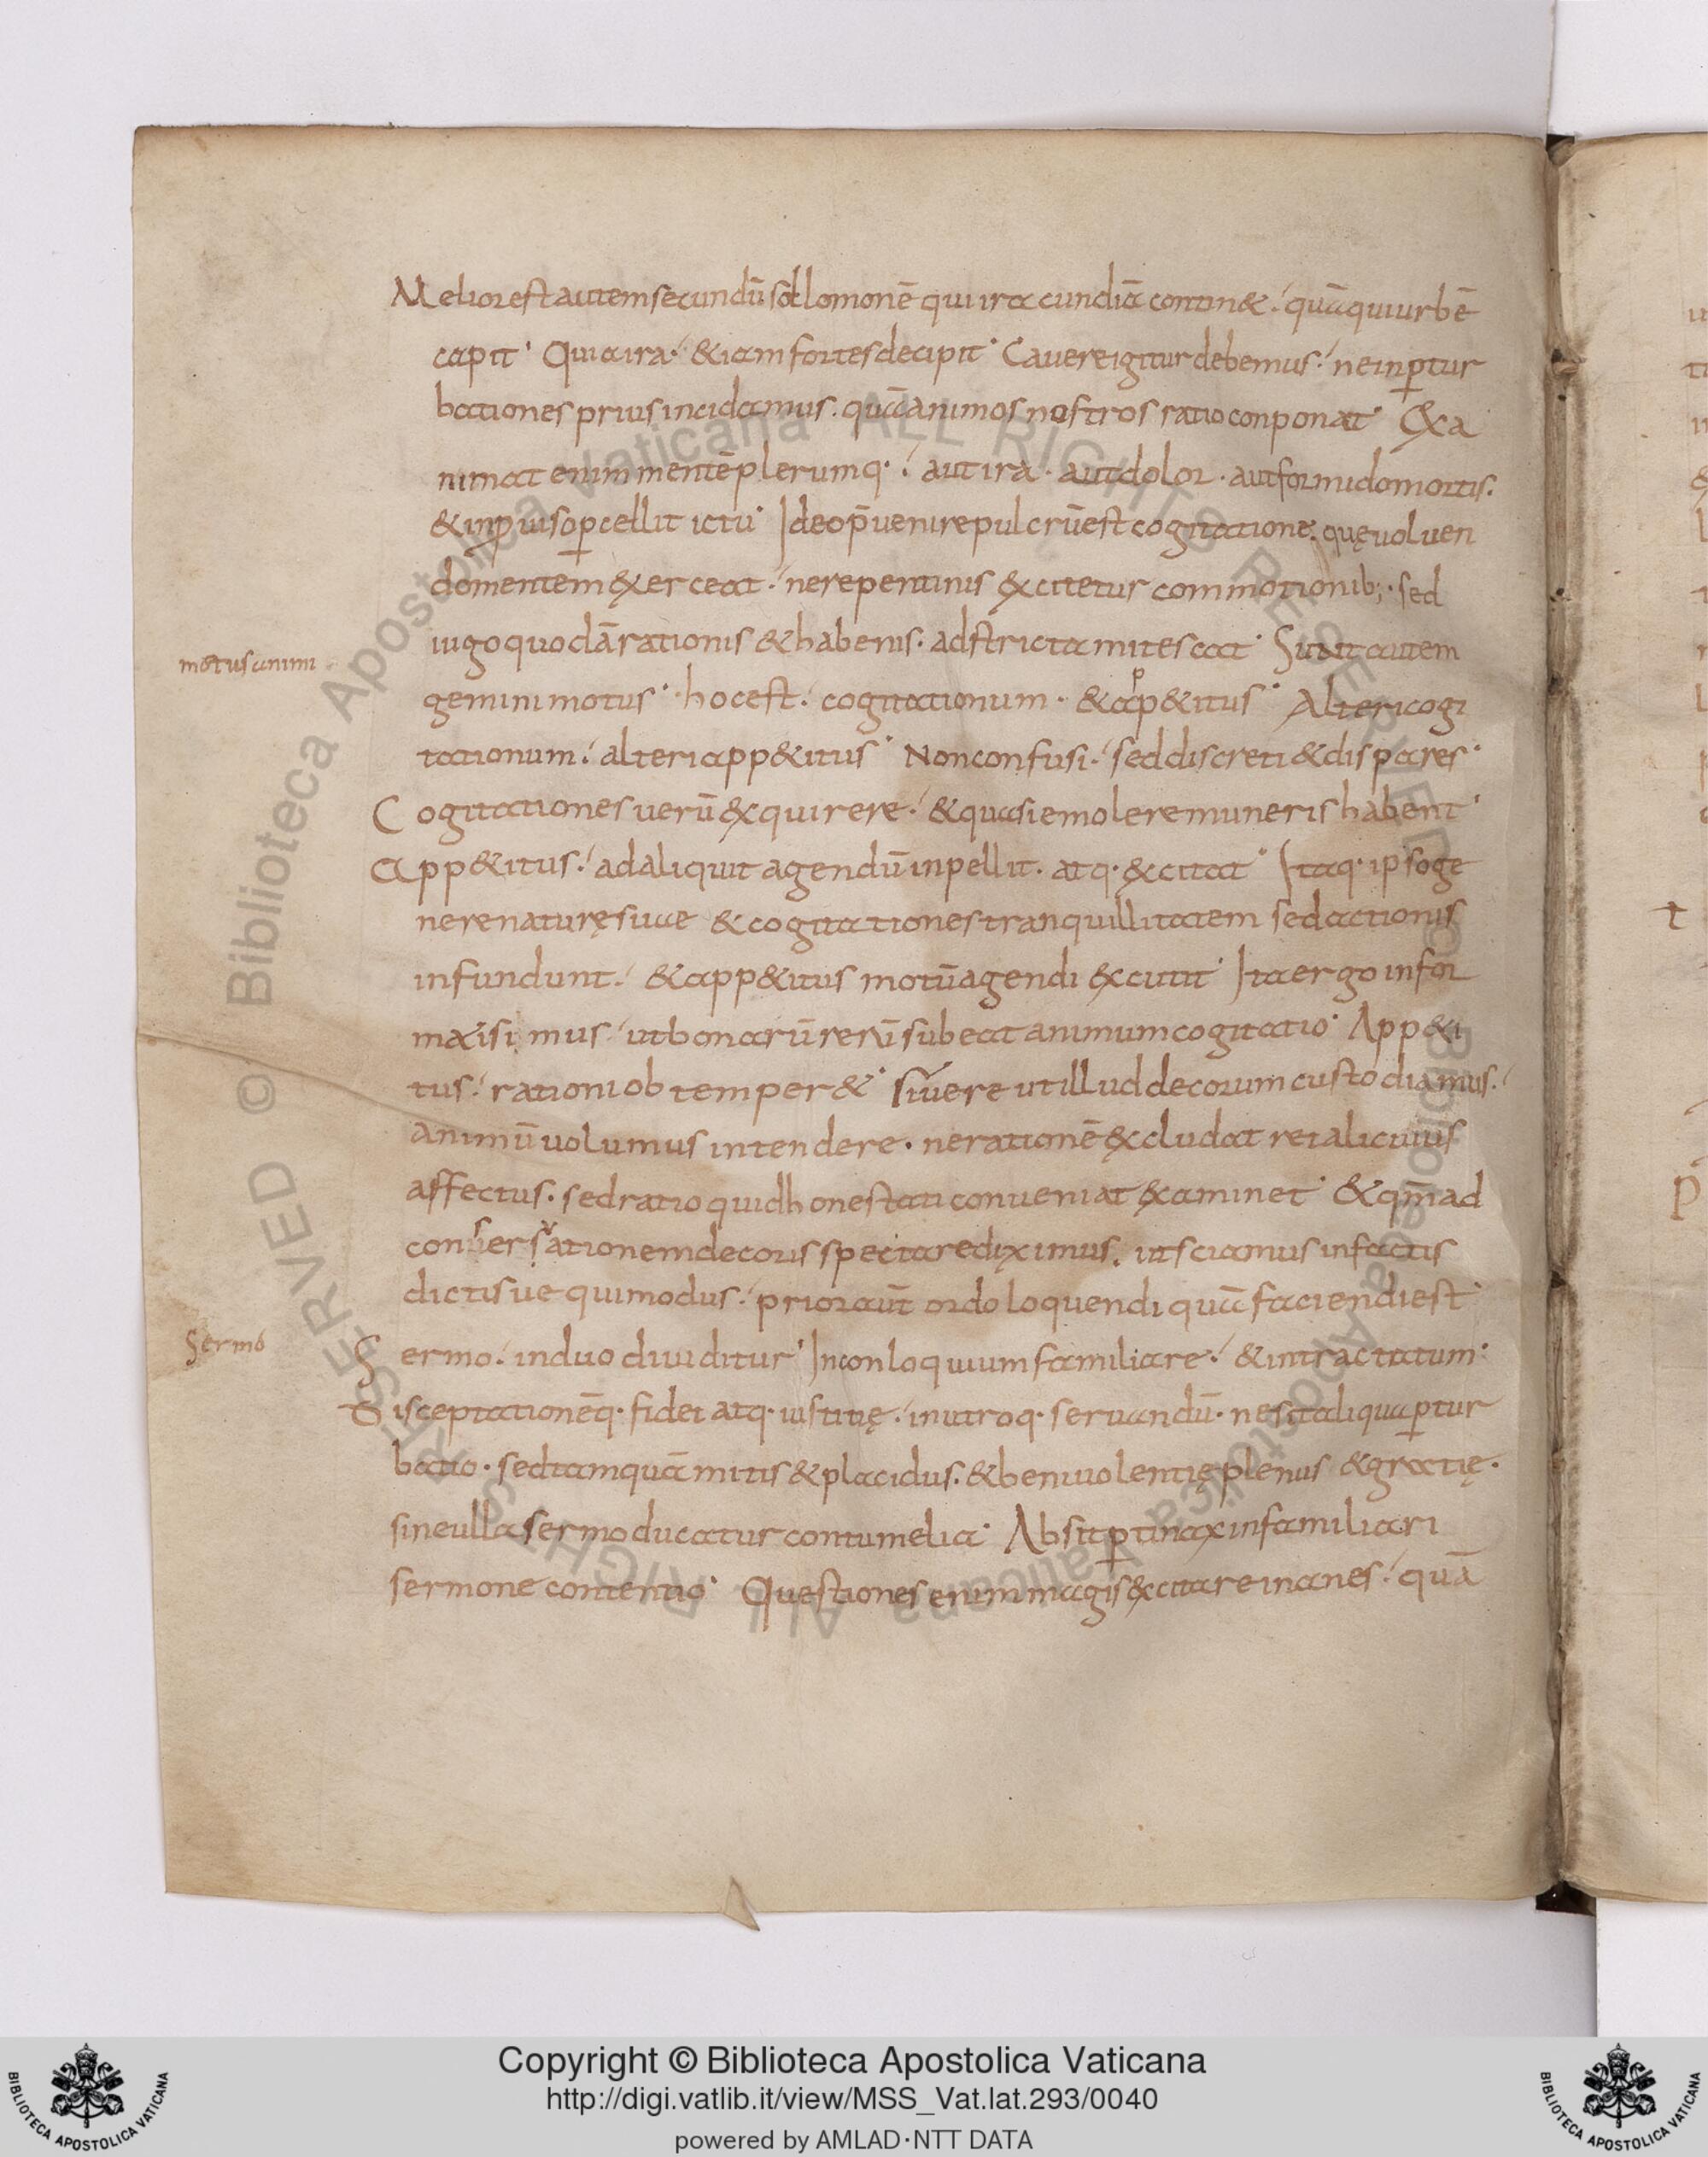 Melior est autem secundū solomonē qui iracundiā contin&. quā qui urbē
capit. Quia ira. & iam fortes decipit. Cauere igitur debemus. ne in ꝑtur
bationes prius incidamus. quā animos nostros ratio conponat. Exa
nimat enim mentē plerumq. aut ira. aut dolor. aut formido mortis.
& inꝓuiso ꝑcellit ictu. Ideo p̄uenire pulcrū est cogitatione. quę voluen
do mentem exerceat. ne repentinis excitetur commotionib;. sed
motus animi
iugo quodā rationis & habenis. adstricta mitescat. Sunt autem
gemini motus. hoc est. cogitationum. & app&itus. Alteri cogi
tationum. alteri app&itus. Non confusi. sed discreti & dispares.
Cogitationes uerū exquirere. & quasi emolere muneris habent.
App&itus. ad aliquit agendū inpellit. atq. excitat. Itaq. ipso ge
nere naturę suae & cogitationes tranquillitatem sedactionis
infundunt. & app&itus motū agendi excutit. Ita ergo infor
mati simus. ut bonarū rerū subeat animum cogitatio. App&i
tus. rationi obtemper&. Si uere ut illud decorum custodiamus.
animū uolumus intendere. ne rationē excludat rei alicuius
affectus. sed ratio quid honestati conueniat examinet. & qm̄ ad
conseruationem decoris spectare diximus. ut sciamus in factis
dictisue qui modus. prior aūt ordo loquendi quā faciendi est.
Sermo
Sermo. in duo diuiditur. In conloquium familiare. & in tractatum.
disceptationēq. fidei atq. iustitię. in utroq. seruandū. ne sit aliqua ꝑtur
batio. sed tamquā mitis & placidus. & beniuolentię plenus & gratię.
sine ulla sermo ducatur contumelia. Absit ꝑtinax in familiari
sermone contentio. Questiones enim magis excitare inanes. quā
ALL RIGHTS RESERVED © Biblioteca Apostolica Vaticana
Copyright © Biblioteca Apostolica Vaticana
http://digi.vatlib.it/view/MSS_Vat.lat.293/0040
powered by AMLAD·NTT DATA
BIBLIOTECA APOSTOLICA VATICANA
BIBLIOTECA APOSTOLICA VATICANA